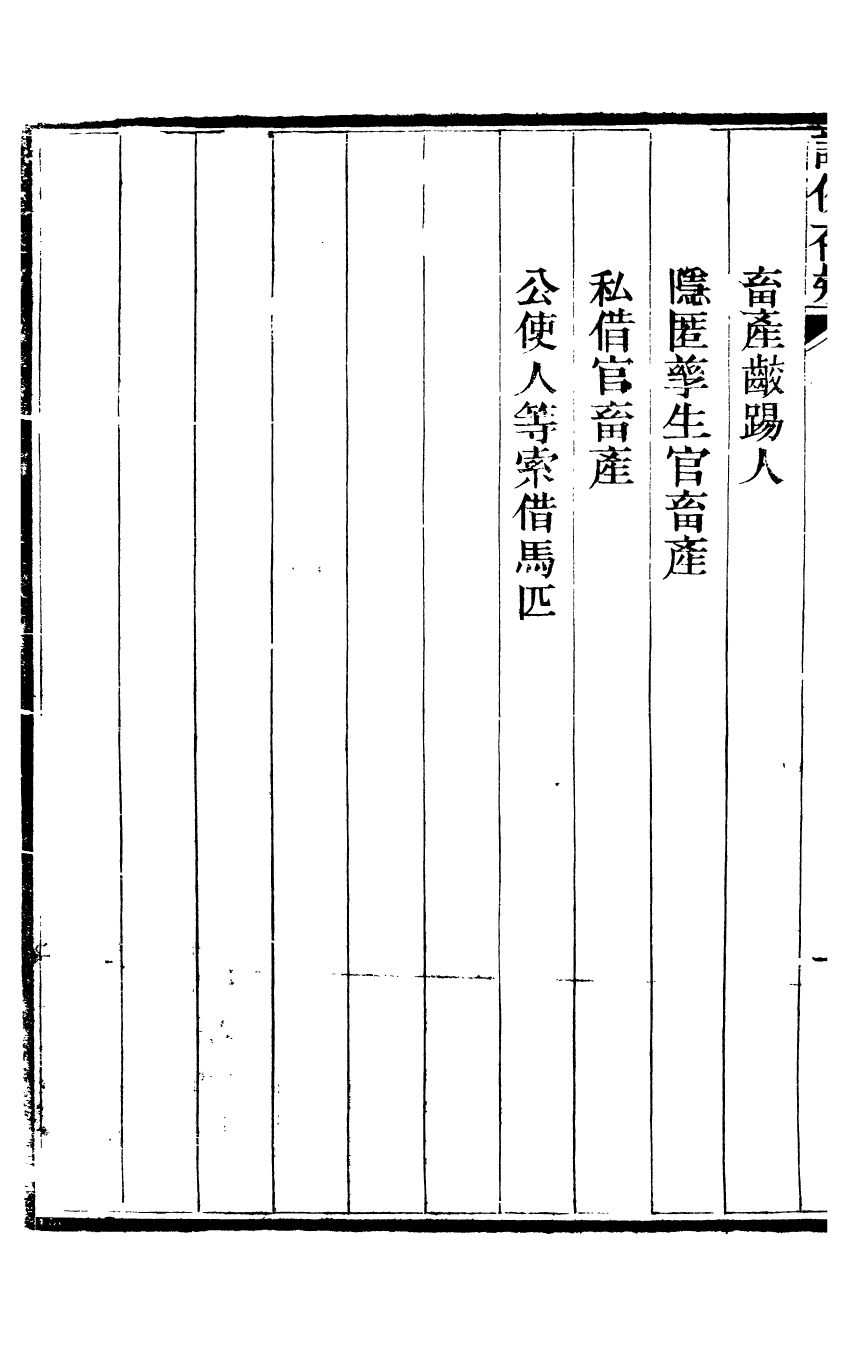 畜產齩踢人
隱匿孳生官畜產
私借官畜產
公使人等索借馬匹